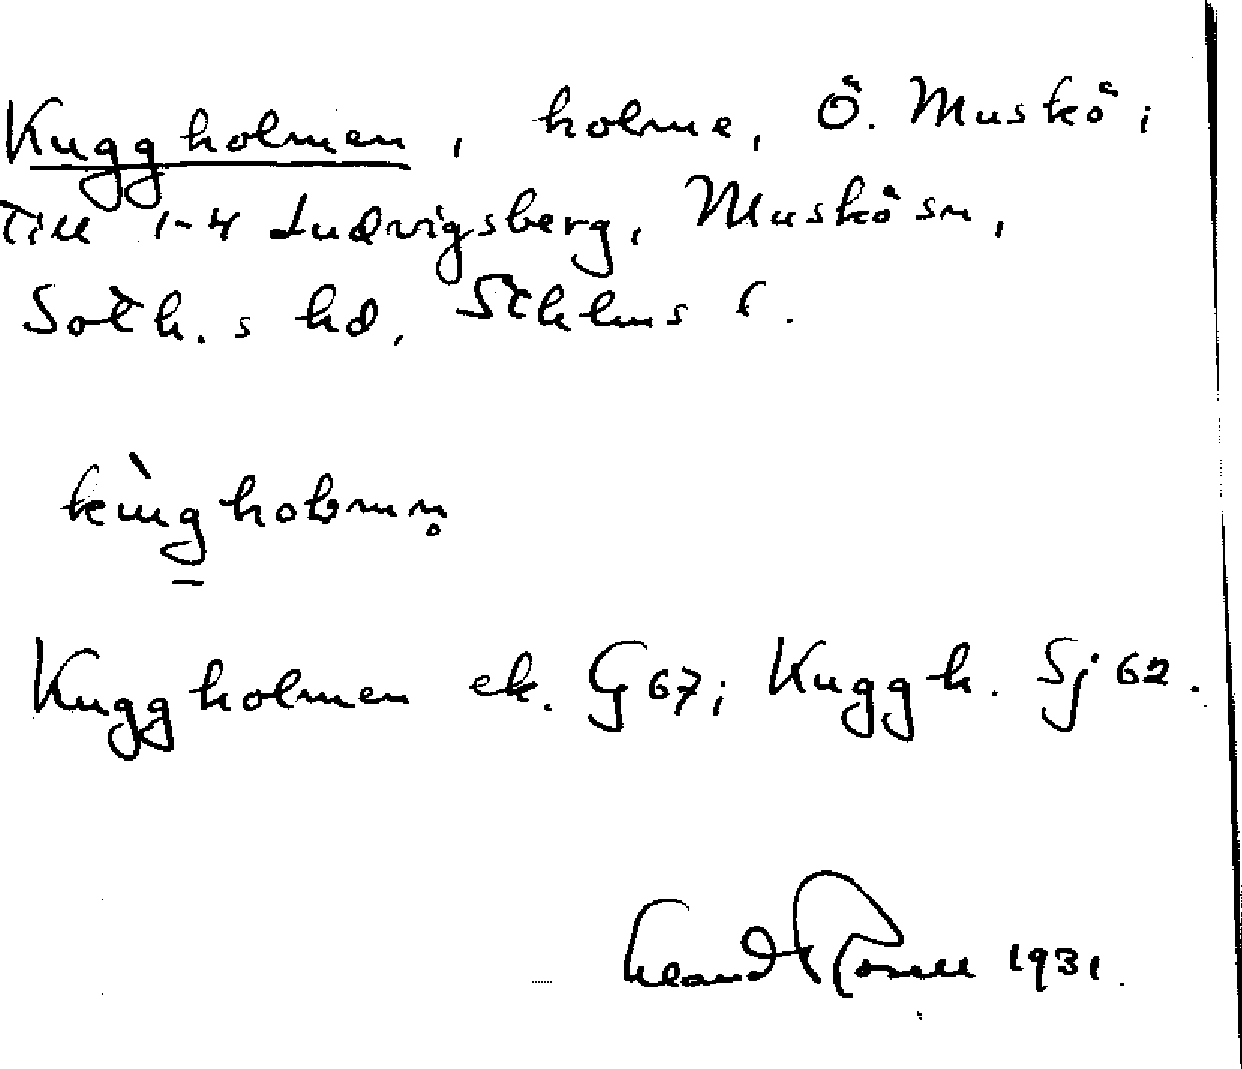 Kuggholmen, holme, Ö. Muskö;
till 1-4 Ludvigsberg, Muskö sn,
Soth.s hd, Sthlms l.
Kuggholmen ek. G 67; Kuggh. Sj 62.
1931.